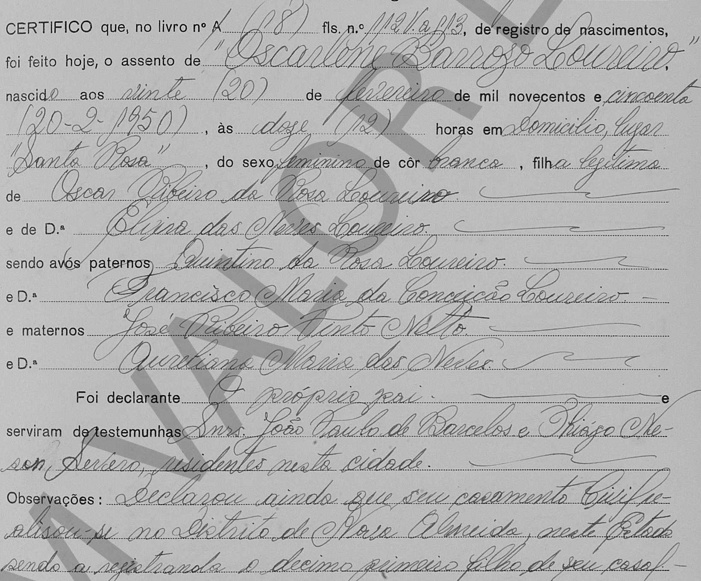 CERTIFICO que, no livro nº A (18) fls. n.º 112V.a 113, de registro de nascimentos,
foi feito hoje, o assento de "Oscarlone Barrozo Loureiro."
nascido aos vinte (20) de fevereiro de mil novecentos e cincoenta
(20-2-1950), às doze (12) horas em Domicilio, lugar
"Santa Rosa", do sexo feminino de côr branca, filha legitima
de Oscar Ribeiro da Rosa Loureiro
e de D.ª Elvira das Neves Loureiro.
sendo avós paternos Quintino da Rosa Loureiro.
e D.ª Francisca Maria da Conceição Loureiro.
e maternos José Ribeiro Pinto Netto.
e D.ª Aureliana Maria das Neves.
Foi declarante O próprio pai. e
serviram de testemunhas Snrs. João Paulo de Barcelos e Thiago
Severo, residentes nesta cidade.
Observações: Declarou ainda que seu casamento Civil re-
alisou-se no Distrito de Nova Almeida, neste Estado
sendo a registranda o decimo primeiro filho de seu casal-
EM VALOR